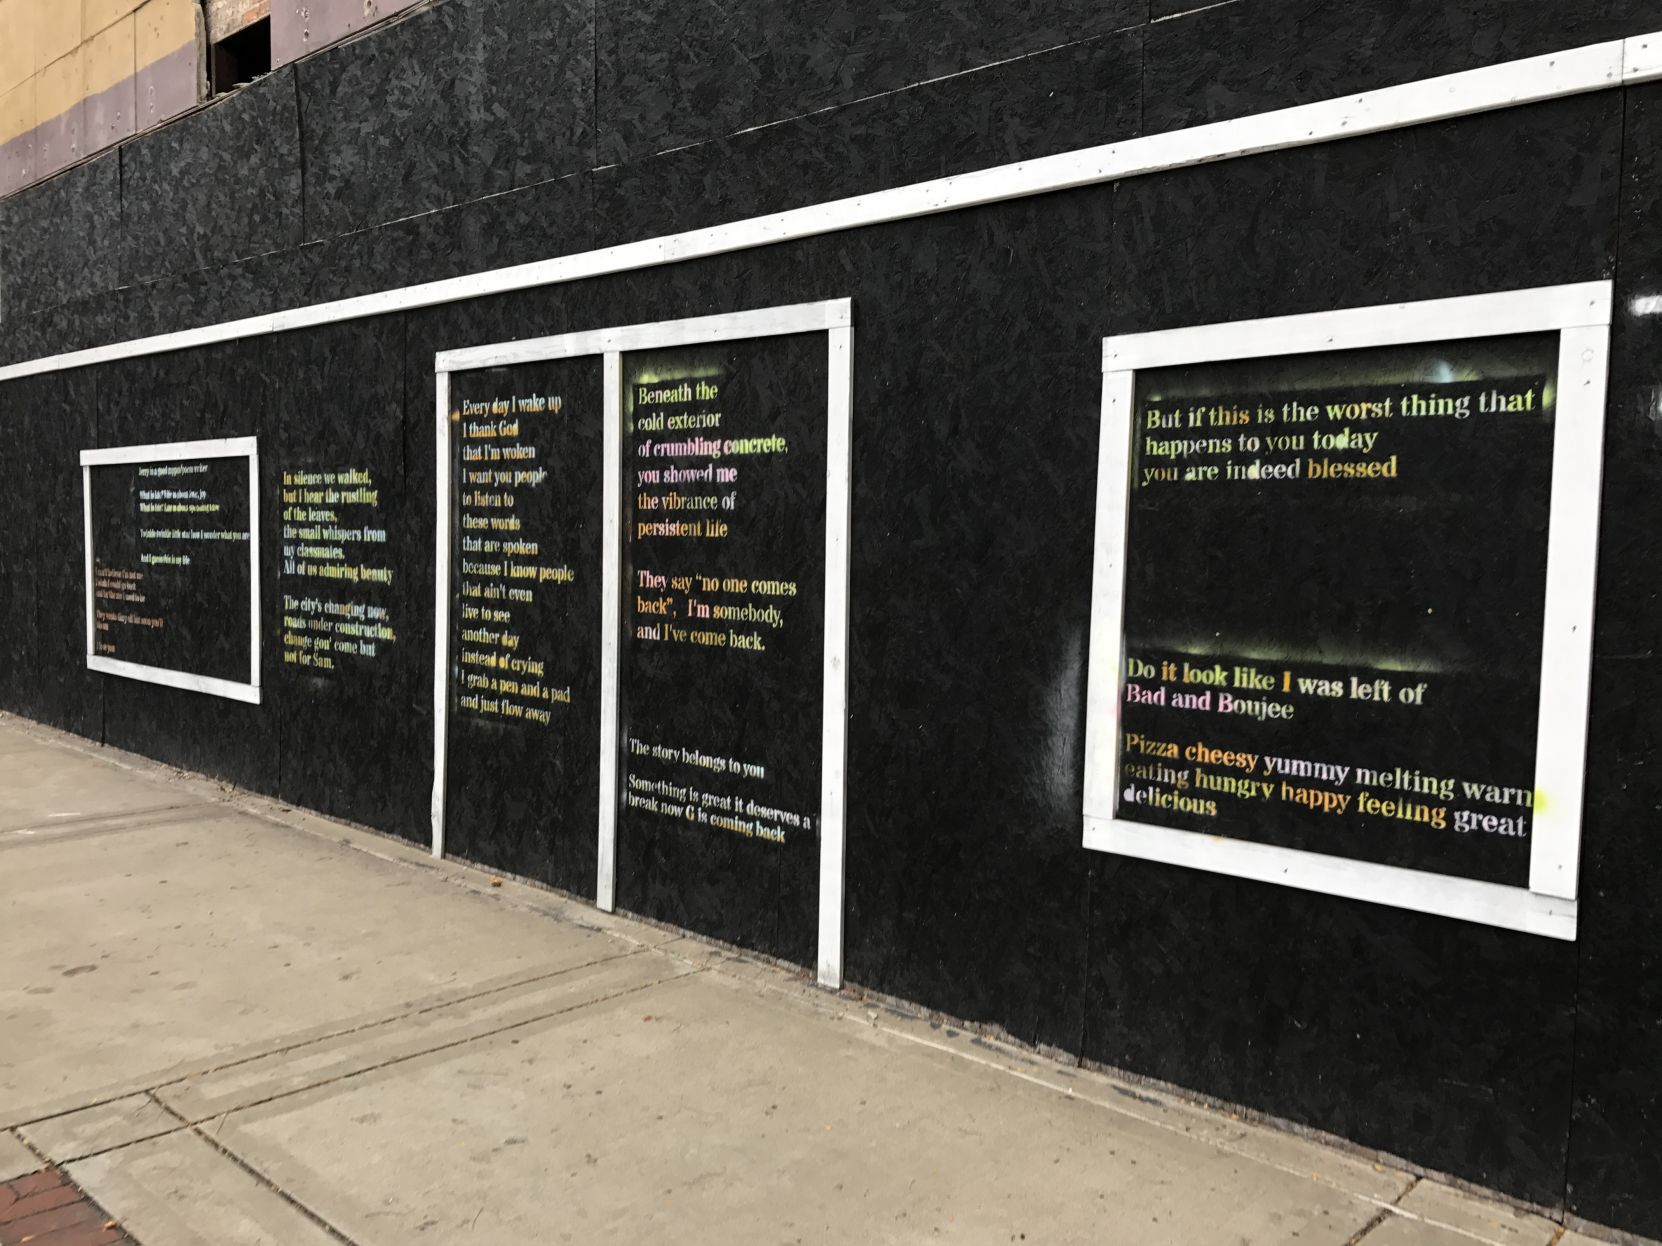 Jerry is a good rapper/poem writer
What is life? Life is about love, joy
What is life? Law is about spreading love
Twinkle twinkle little star how I wonder what you are
And I guess this is my life
In silence we walked,
but I hear the rustling
of the leaves,
the small whispers from
my classmates.
All of us admiring beauty
The city's changing now,
roads under construction,
change gon' come but
not for Sam.
Every day I wake up
I thank God
that I'm woken
I want you people
to listen to
these words
that are spoken
because I know people
that ain't even
live to see
another day
instead of crying
I grab a pen and a pad
and just flow away
Beneath the
cold exterior
of crumbling concrete,
you showed me
the vibrance of
persistent life
They say “no one comes
back”, I'm somebody,
and I've come back.
The story belongs to you
Something is great it deserves a
break now G is coming back
But if this is the worst thing that
happens to you today
you are indeed blessed
Do it look like I was left of
Bad and Boujee
Pizza cheesy yummy melting warm
eating hungry happy feeling great
delicious